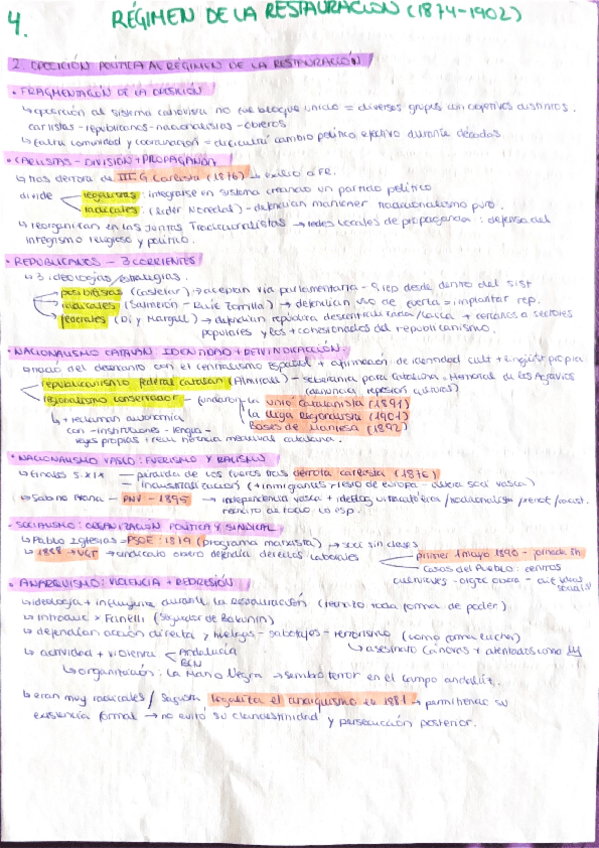 4. RÉGIMEN DE LA RESTAURACIÓN (1874-1902)
2. OPOSICIÓN POLÍTICA AL RÉGIMEN DE LA RESTAURACIÓN
• FRAGMENTACIÓN DE LA OPOSICIÓN
↳ oposición al sistema canovista no fue bloque único = diversos grupos con objetivos distintos.
carlistas - republicanos - nacionalistas - obreros
↳ falta comunidad y coordinación = dificultó cambio político efectivo durante décadas.
• CARLISTAS - DIVISIÓN + PROPAGANDA
↳ tras derrota de III G carlista (1876) → exilio a FR.
divide
neocatólicos: integrarse en sistema creando un partido político
radicales: (líder Nocedal) - defendían mantener tradicionalismo puro.
↳ reorganizan en las Juntas Tradicionalistas → redes locales de propaganda: defensa del
integrismo religioso y político.
• REPUBLICANOS - 3 CORRIENTES
↳ 3 ideologías/estrategias.
posibilistas (Castelar): aceptan vía parlamentaria - Rep desde dentro del sist
radicales (Salmerón - Ruiz Zorrilla) → defendían uso de fuerza = implantar rep.
federales (Pi y Margall) → defendían república descentralizada/laica + cercanos a sectores
populares y los + cohesionados del republicanismo.
• NACIONALISMO CATALÁN: IDENTIDAD + REIVINDICACIÓN.
↳ nació del descontento con el centralismo español + afirmación de identidad cult + lingüíst propia
republicanismo federal catalán (Almirall) - soberanía para Cataluña - Memorial de los Agravios
regionalismo conservador - fundaron la Unió Catalanista (1891)
la Lliga Regionalista (1901)
Bases de Manresa (1892)
↳ + reclaman autonomía
con - instituciones - lengua -
leyes propias: reivi herencia medieval catalana.
• NACIONALISMO VASCO: FUERISMO Y RACISMO
↳ finales s.XIX
pérdida de los fueros tras derrota carlista (1876)
industrialización (+ inmigrantes + resto de europa - altera soci vasca)
↳ Sabino Arana - PNV - 1895 → independencia vasca
• SOCIALISMO: ORGANIZACIÓN POLÍTICA Y SINDICAL
↳ Pablo Iglesias = PSOE: 1879 (programa marxista) → soci sin clases
↳ 1888 → UGT → sindicato obrero defendía derechos laborales
primer 1 mayo 1890 - jornada 8h
Casas del Pueblo: centros
culturales
• ANARQUISMO: VIOLENCIA + REPRESIÓN
↳ ideología + influyente durante la Restauración (rechazó toda forma de poder)
↳ introduce > Fanelli (seguidor de Bakunin)
↳ defendían acción directa y huelgas - sabotajes - terrorismo (como forma lucha)
↳ asesinato Cánovas + atentados como
↳ actividad + violenta
Andalucía
BCN
↳ organización: la Mano Negra → sembró terror en el campo andaluz.
↳ eran muy radicales / Sagasta legaliza el anarquismo en 1881 → permitiendo su
existencia formal → no evitó su clandestinidad y persecución posterior.